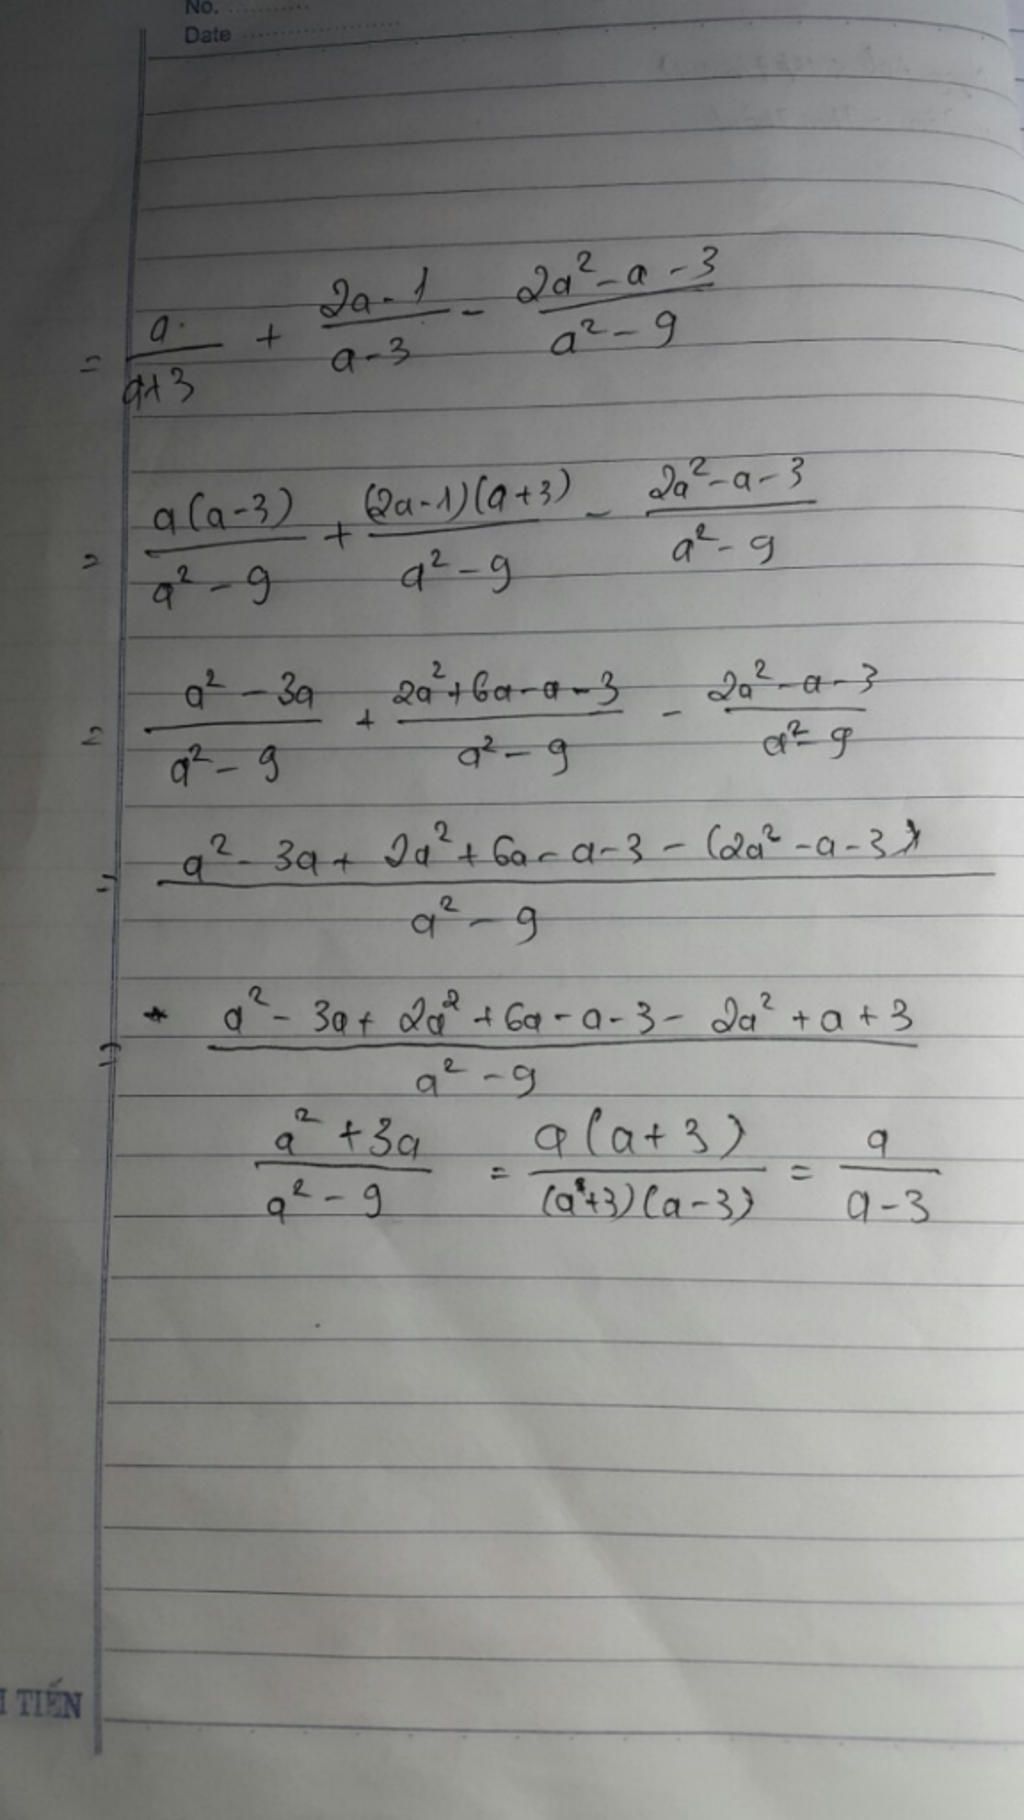 No.
Date
= a/(a+3) + (2a-1)/(a-3) - (2a²-a-3)/(a²-9)
= a(a-3)/(a²-9) + (2a-1)(a+3)/(a²-9) - (2a²-a-3)/(a²-9)
= (a²-3a)/(a²-9) + (2a²+6a-a-3)/(a²-9) - (2a²-a-3)/(a²-9)
= (a²-3a+2a²+6a-a-3-(2a²-a-3))/(a²-9)
= (a²-3a+2a²+6a-a-3-2a²+a+3)/(a²-9)
(a²+3a)/(a²-9) = a(a+3)/((a+3)(a-3)) = a/(a-3)
TIẾN